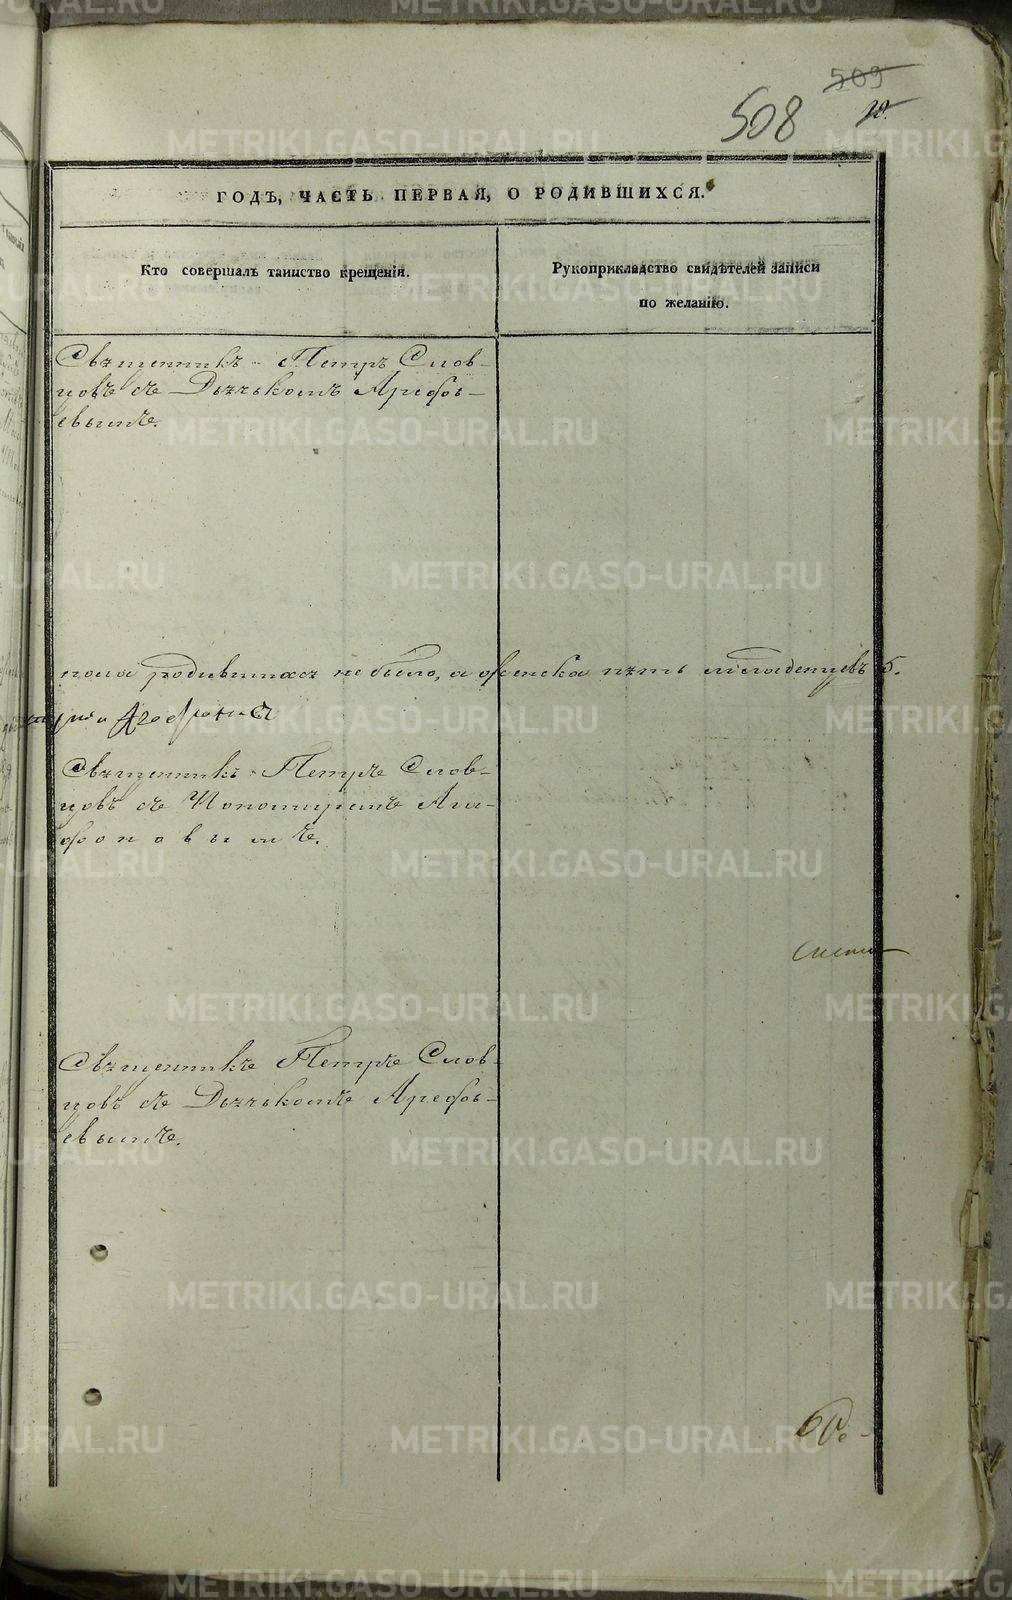 509
508
12.
ГОДЪ, ЧАСТЬ ПЕРВАЯ, О РОДИВШИХСЯ.
Кто совершалъ таинство крещенія.
Рукоприкладство свидѣтелей записи
по желанію.
Священникъ Петръ Слов-
цовъ съ Дьячькомъ Арефь-
евымъ.
пола родившихся не было, а женска пять младенцевъ 5.
Священникъ Петръ Слов-
цовъ съ Пономаремъ Ага-
фоновымъ.
Священникъ Петръ Слов-
цовъ съ Дьячькомъ Арефь-
евымъ.
METRIKI.GASO-URAL.RU